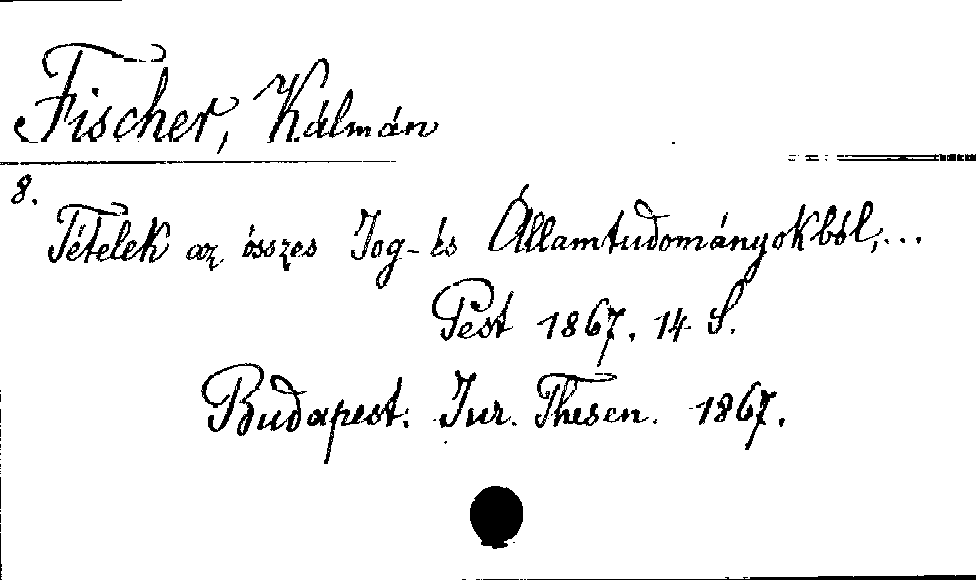 Fischer, Kálmán
8.
Tételek az összes Jog- és Államtudományokból,...
Pest 1867. 14 S.
Budapest: Jur. Thesen. 1867.